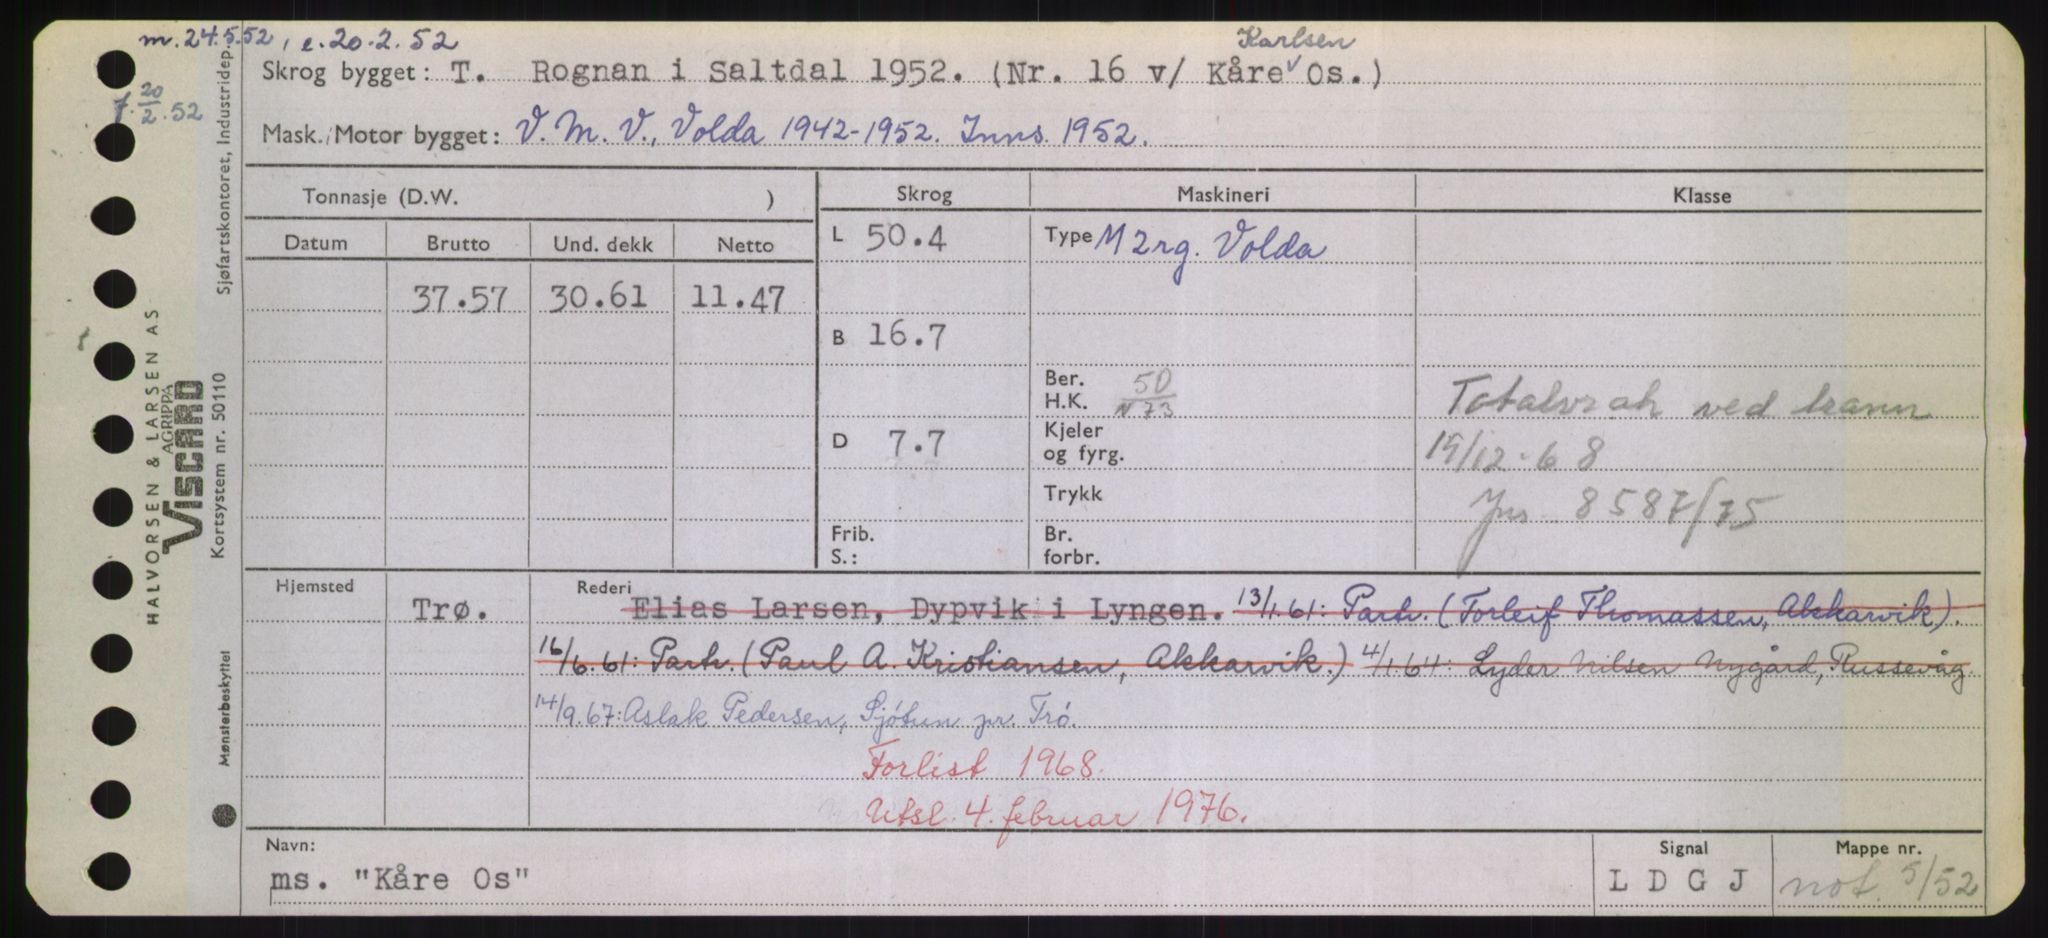 m. 24.5.52, e. 20.2.52
Karlsen
Skrog bygget: T. Rognan i Saltdal 1952. (Nr. 16 v/ Kåre v Os.)
7. 20/2.52
Mask./Motor bygget: V. M. V., Volda 1942-1952. Inns. 1952.
Tonnasje (D.W. )
Skrog Maskineri Klasse
Datum Brutto Und. dekk Netto
L 50.4 Type M 2rg. Volda
37.57 30.61 11.47
B 16.7
Ber. H.K. 50 N 73
Totalvrak ved brann
D 7.7 Kjeler og fyrg.
19/12-68
Trykk
Jnr 8587/75
Frib. S.: Br. forbr.
Hjemsted Rederi
Trø. Elias Larsen, Dypvik i Lyngen. 13/1.61: Partr. (Torleif Thomassen, Akkarvik).
16/6.61: Partr. (Paul A. Kristiansen, Akkarvik.) 4/1.64: Lyder Nilsen Nygård, Russevåg.
14/9.67: Aslak Pedersen, Sjøtun pr. Trø.
Forlist 1968.
Utsl. 4. februar 1976.
Navn: Signal Mappe nr.
ms. "Kåre Os" L D G J not. 5/52
HALVORSEN & LARSEN AS
AGRIPPA
VISCARD
Kortsystem nr. 50110
Sjøfartskontoret, Industridep.
Mønsterbeskyttet